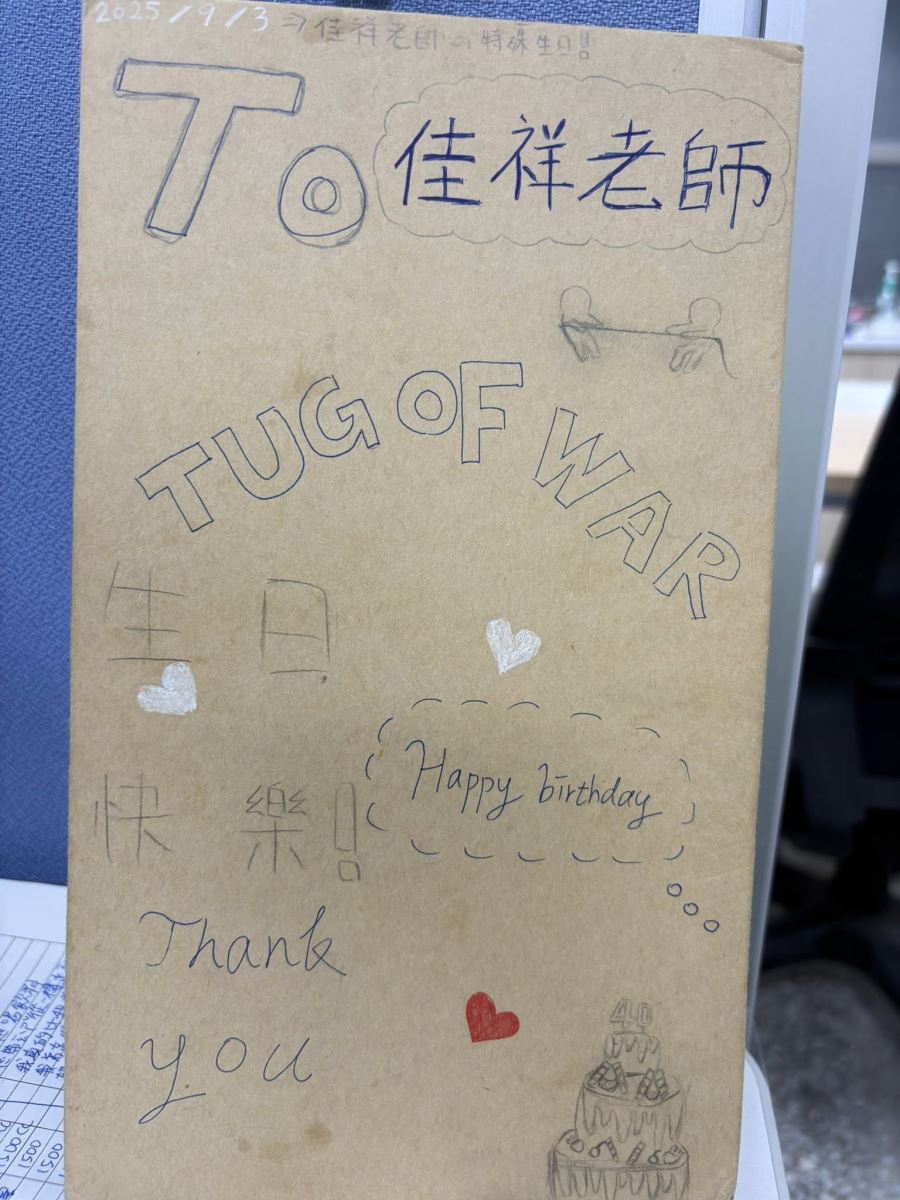 2025/9/3 ⇒ 佳祥老師の特殊生日!!
To 佳祥老師
TUG OF WAR
生日
快樂!
Happy birthday
Thank
you
40
1500
1500
1500